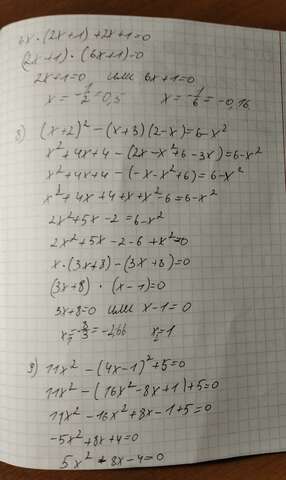 6x·(2x+1)+2x+1=0
(2x+1)·(6x+1)=0
2x+1=0 или 6x+1=0
x=-1/2=0,5 x=-1/6=-0,16
8) (x+2)²-(x+3)(2-x)=6-x²
x²+4x+4-(2x-x²+6-3x)=6-x²
x²+4x+4-(-x-x²+6)=6-x²
x²+4x+4+x+x²-6=6-x²
2x²+5x-2=6-x²
2x²+5x-2-6+x²=0
x·(3x+8)-(3x+8)=0
(3x+8)·(x-1)=0
3x+8=0 или x-1=0
x₁=-8/3=-2,66 x₂=1
9) 11x²-(4x-1)²+5=0
11x²-(16x²-8x+1)+5=0
11x²-16x²+8x-1+5=0
-5x²+8x+4=0
5x²-8x-4=0